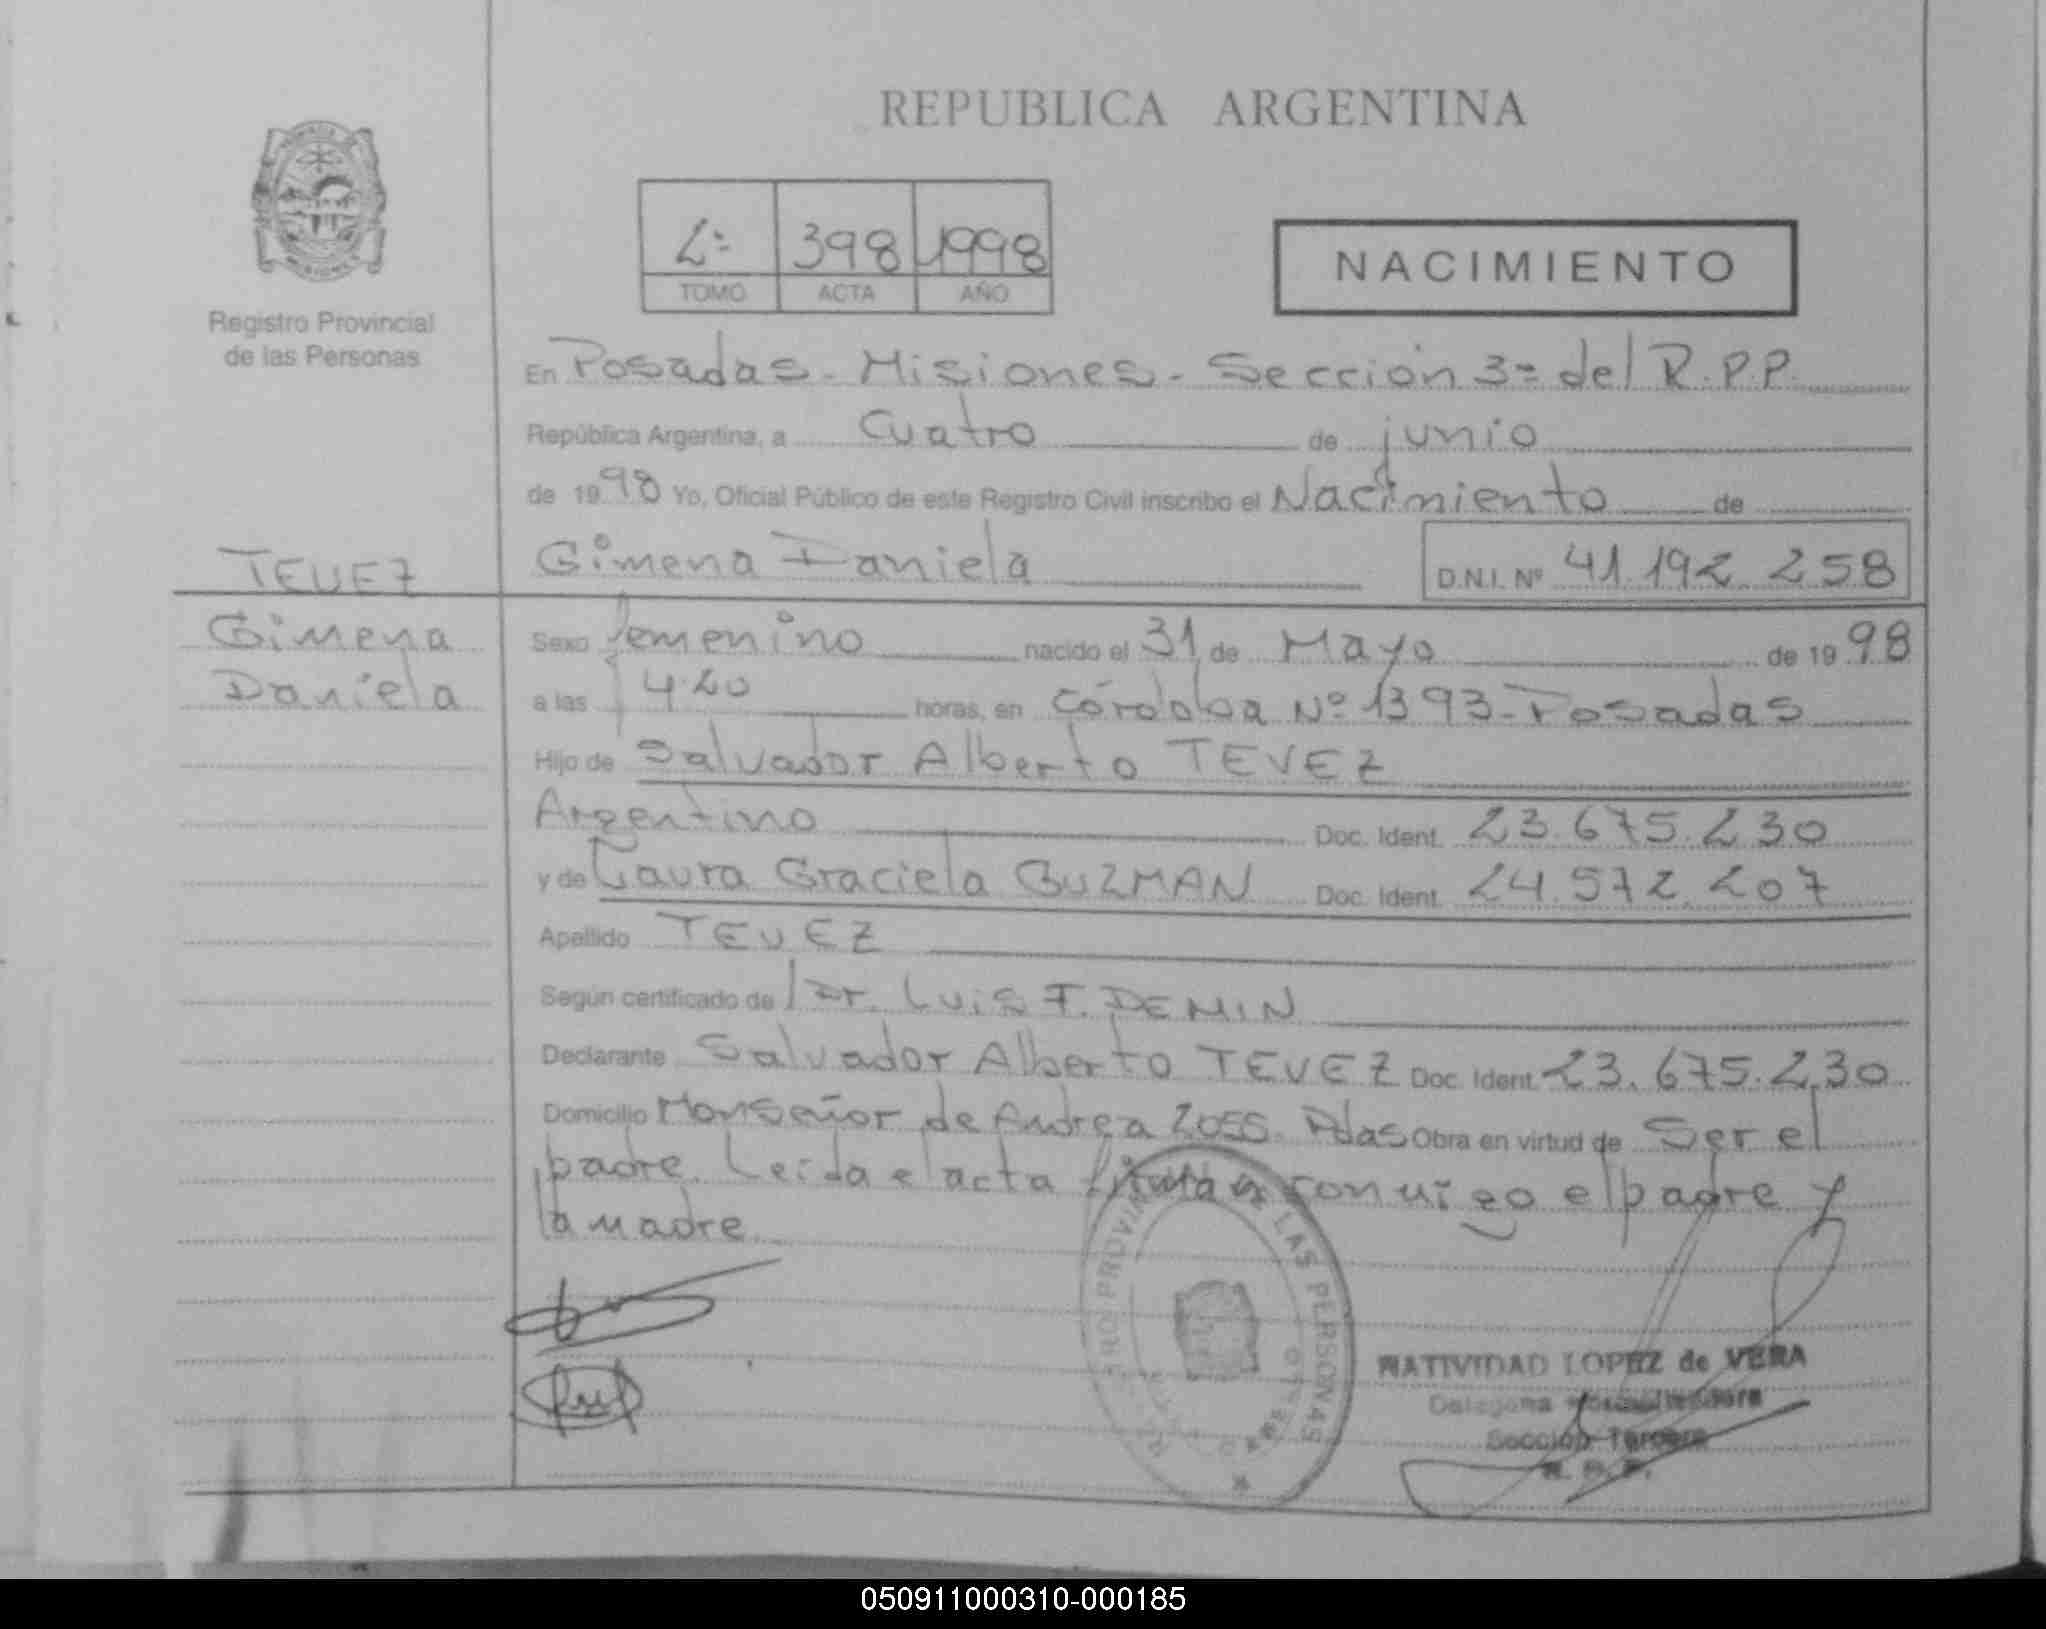 REPUBLICA ARGENTINA
2º 398 1998
TOMO ACTA AÑO
NACIMIENTO
Registro Provincial
de las Personas
TEVEZ
Gimena
Daniela
En Posadas - Misiones - Sección 3º del R.P.P.
República Argentina, a cuatro de junio
de 1998 Yo, Oficial Público de este Registro Civil inscribo el Nacimiento de
Gimena Daniela D.N.I. Nº 41.192.258
Sexo femenino nacido el 31 de Mayo de 1998
a las 4.20 horas, en Córdoba Nº 1393 - Posadas
Hijo de Salvador Alberto TEVEZ
Argentino Doc. Ident. 23.675.230
y de Laura Graciela GUZMAN Doc. Ident. 24.572.207
Apellido TEVEZ
Según certificado de Dr. Luis F. DEMIN
Declarante Salvador Alberto TEVEZ Doc. Ident. 23.675.230
Domicilio Monseñor de Andrea 2055 Pdas Obra en virtud de Ser el
padre. Leida el acta firman conmigo el padre y
la madre.
LAS PERSONAS
NATIVIDAD LOPEZ de VERA
Sección Tercera
R. P. P.
050911000310-000185